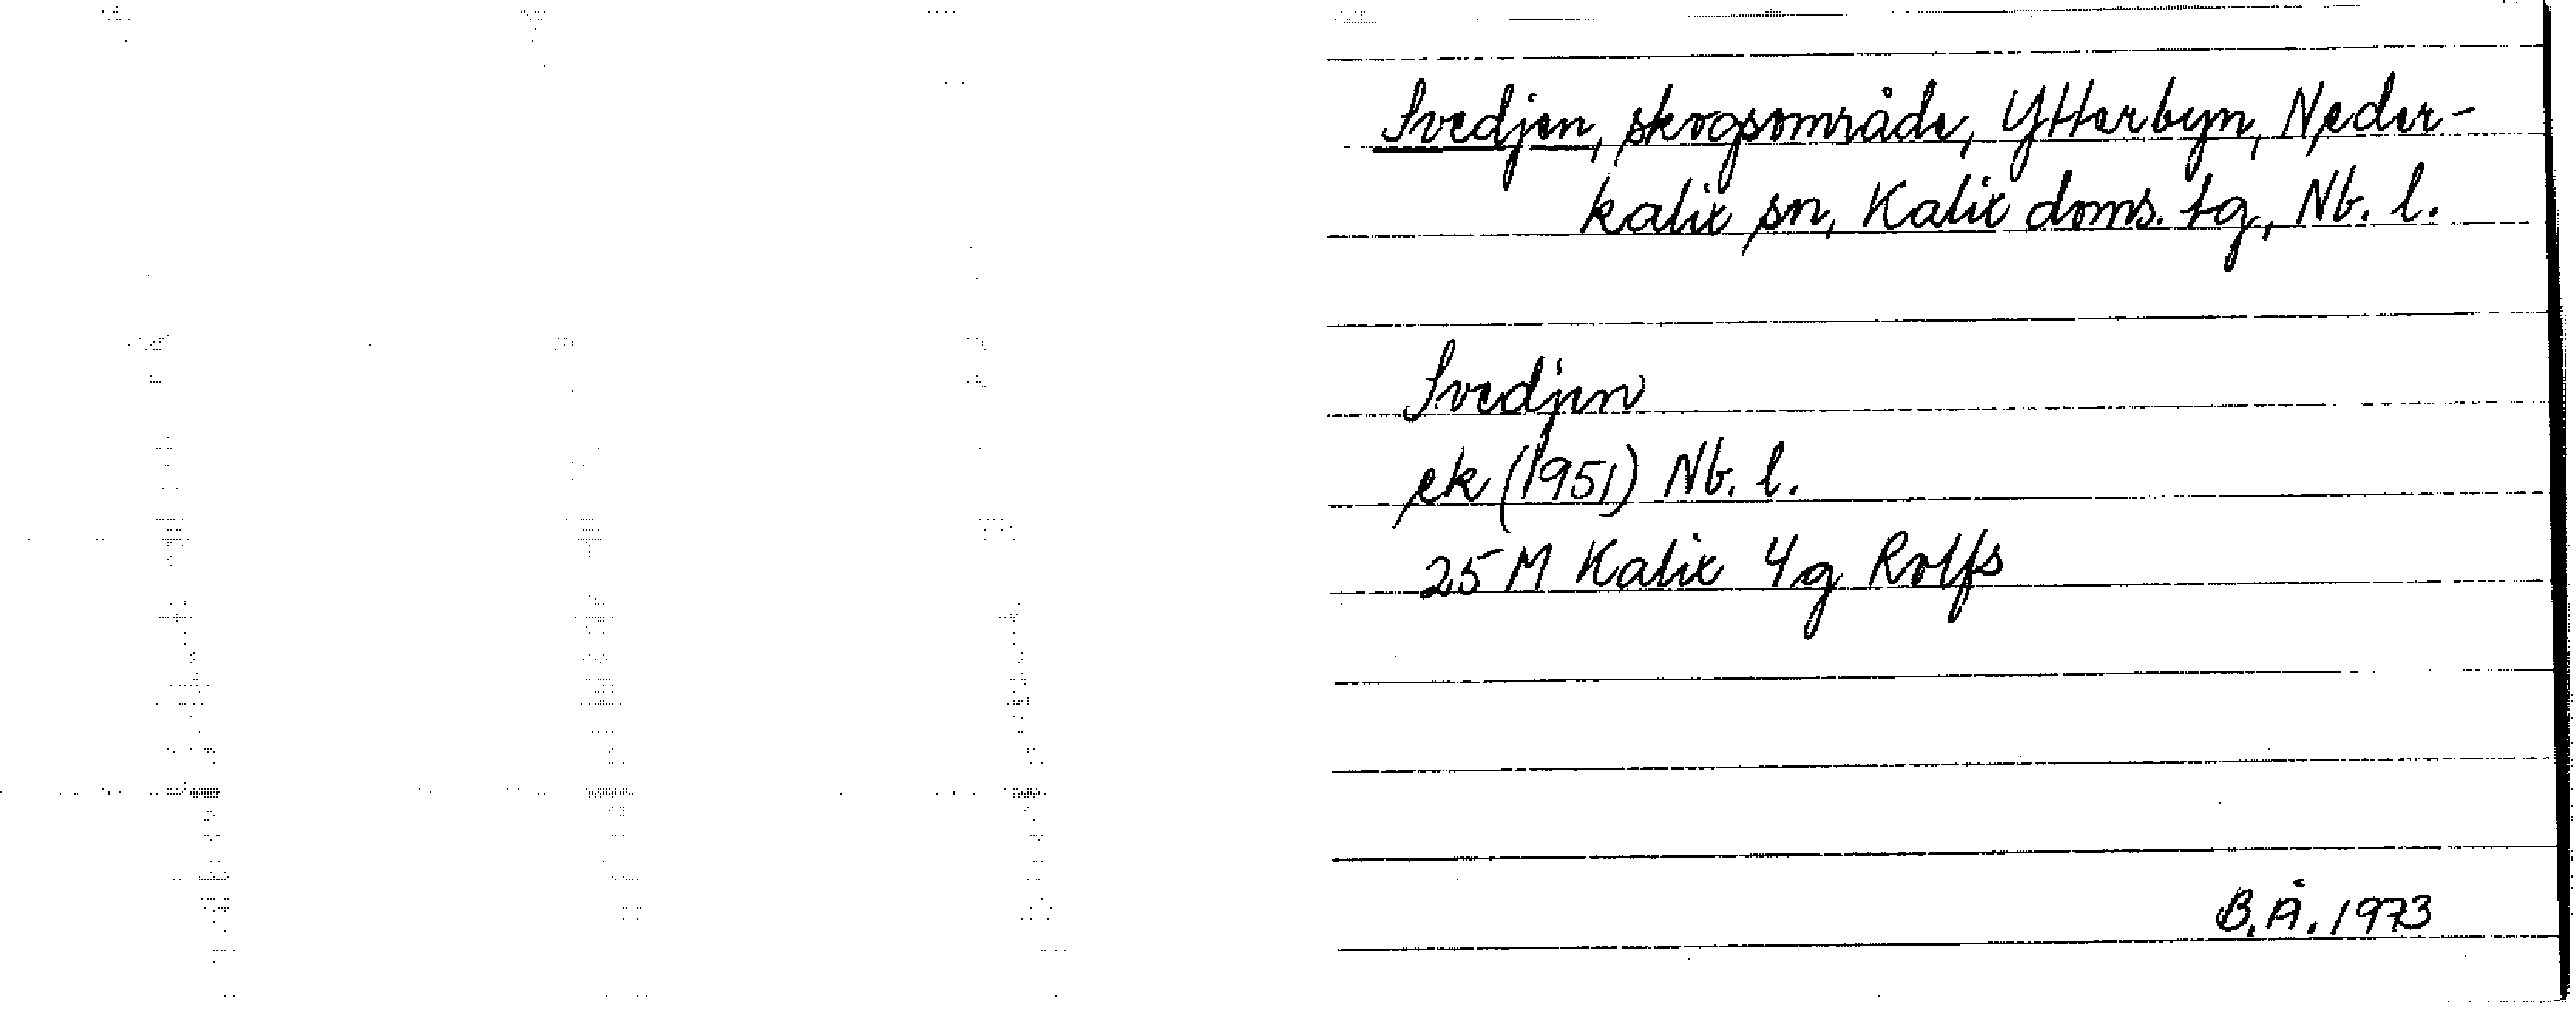 Svedjen, skogsområde, Ytterbyn, Neder-
kalix sn, Kalix doms. tg, Nb. l.
Svedjen
ek (1951) Nb. l.
25 M Kalix 4g Rolfs
B.Å. 1973